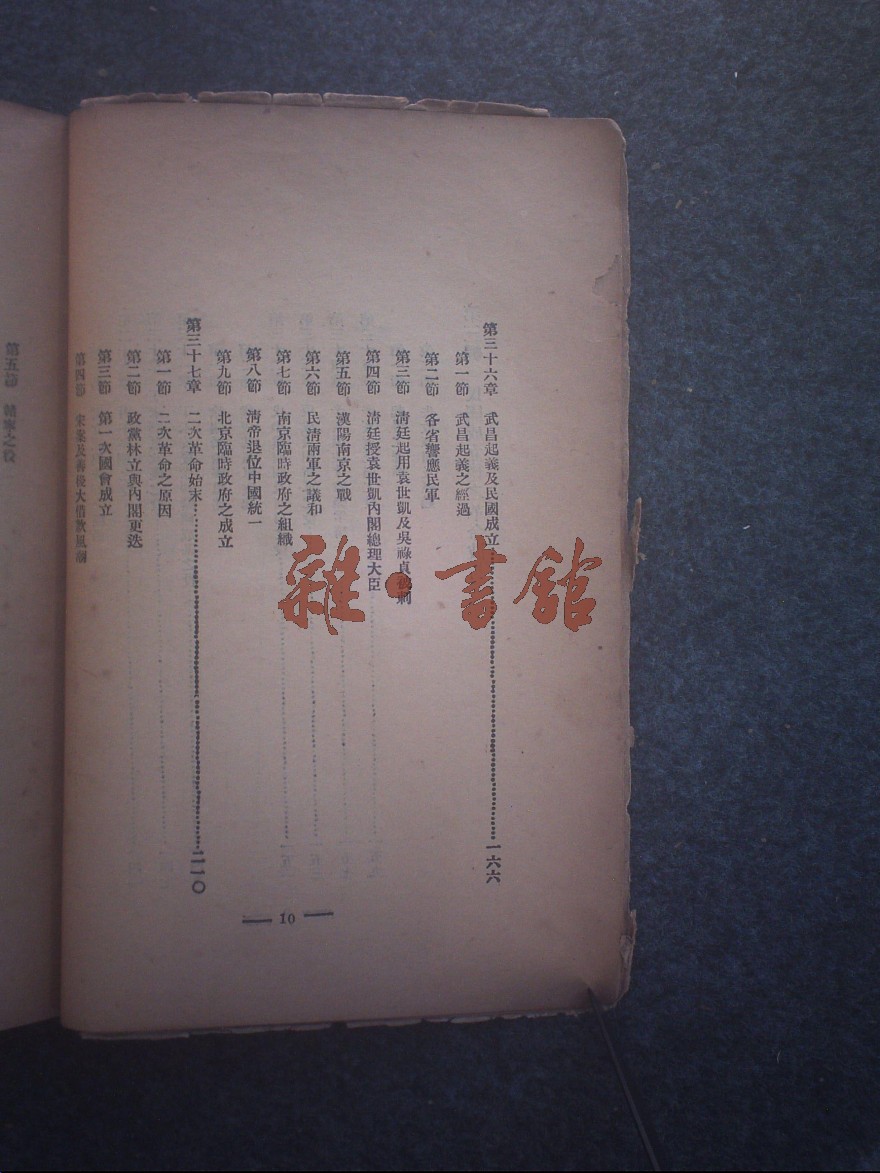 第三十六章　武昌起義及民國成立……一六六
第一節　武昌起義之經過
第二節　各省響應民軍
第三節　清廷起用袁世凱及吳祿貞被刺
第四節　清廷授袁世凱內閣總理大臣
第五節　漢陽南京之戰
第六節　民清兩軍之議和
第七節　南京臨時政府之組織
第八節　清帝退位中國統一
第九節　北京臨時政府之成立
第三十七章　二次革命始末……二一〇
第一節　二次革命之原因
第二節　政黨林立與內閣更迭
第三節　第一次國會成立
第四節　宋案及善後大借款風潮
10
第五節　贛寧之役
雜·書館